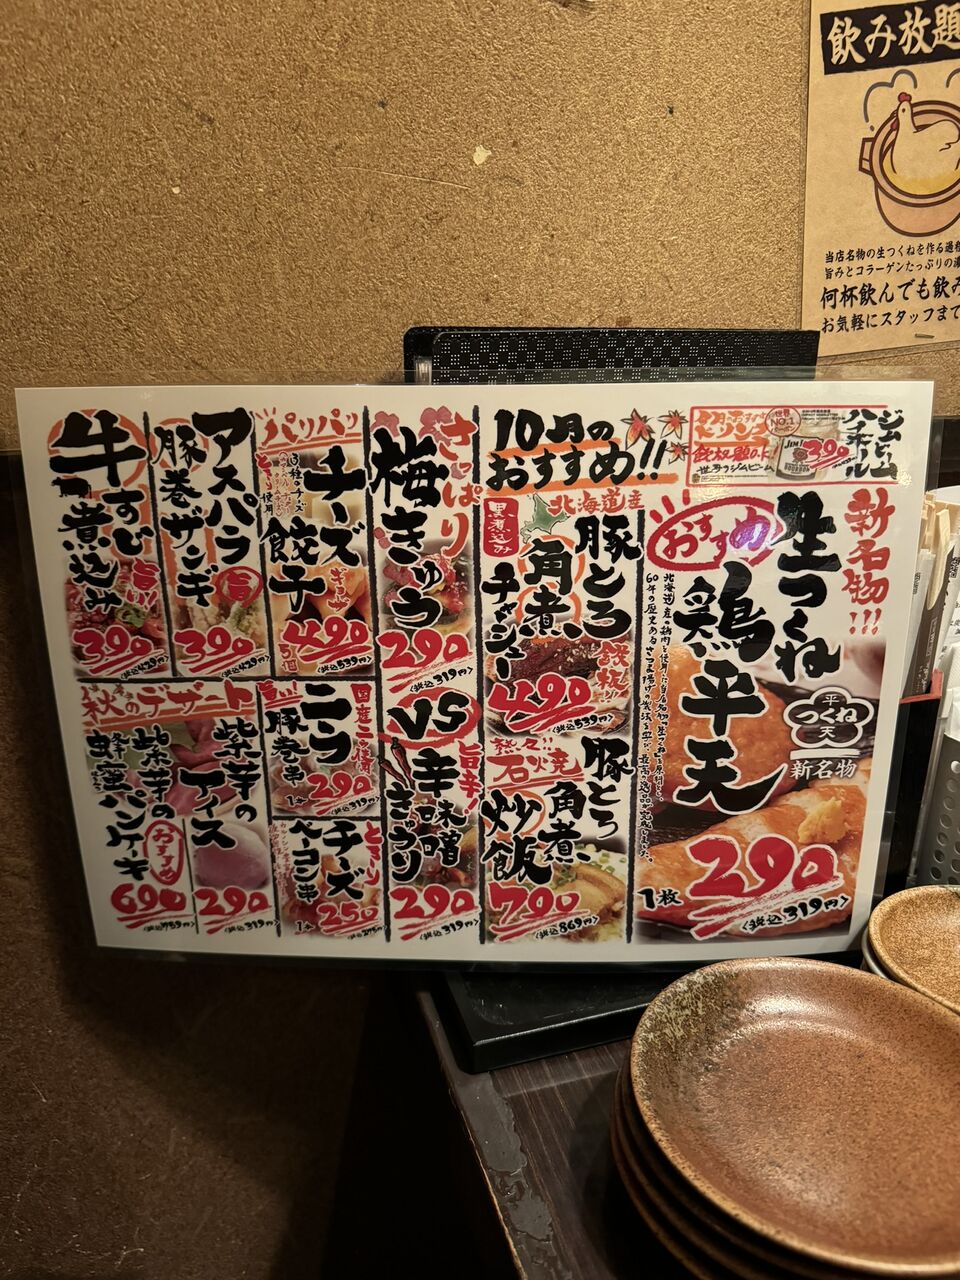 飲み放題
当店名物の生つくねを作る過程
旨みとコラーゲンたっぷりの濃
何杯飲んでも飲み
お気軽にスタッフまで
10月の
おすすめ!!
ジムビーム
ハイボール
世界
NO.1
JIM
BOURBON
390
飲放題O.K!
世界のジムビーム
新名物!!!
生つくね
鶏平天
おすすめ
60年の歴史ある
平
つくね
天
新名物
1枚
290
<税込319円>
北海道産
豚とろ
角煮
チャーシュー
黒煮込み
鉄板!!
490
<税込539円>
熱々!!
石焼
豚とろ
角煮
炒飯
790
<税込869円>
さっぱり
梅きゅう
290
<税込319円>
VS
旨辛!
辛味噌
きゅうり
290
<税込319円>
パリパリ
チーズ
餃子
3種のチーズ
使用
5個
490
<税込539円>
アスパラ
豚巻ザンギ
旨
390
<税込429円>
牛すじ
煮込み
旨い!!
390
<税込429円>
国産ニラ使用
ニラ
豚巻串
旨い!!
1本
290
<税込319円>
とろ〜り
チーズ
ベーコン串
1本
250
<税込275円>
秋のデザート
紫芋の
アイス
290
<税込319円>
紫芋の
蜂蜜パンケーキ
おすすめ
690
<税込759円>